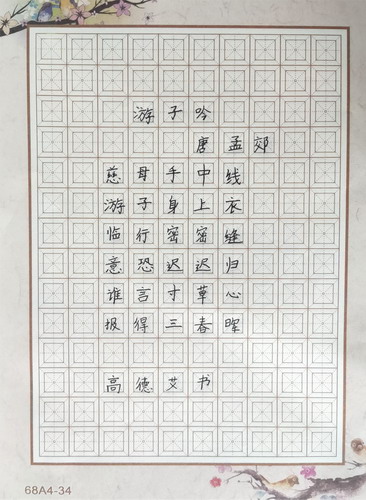 游子吟
唐 孟郊
慈母手中线
游子身上衣
临行密密缝
意恐迟迟归
谁言寸草心
报得三春晖
高德艾书
68A4-34